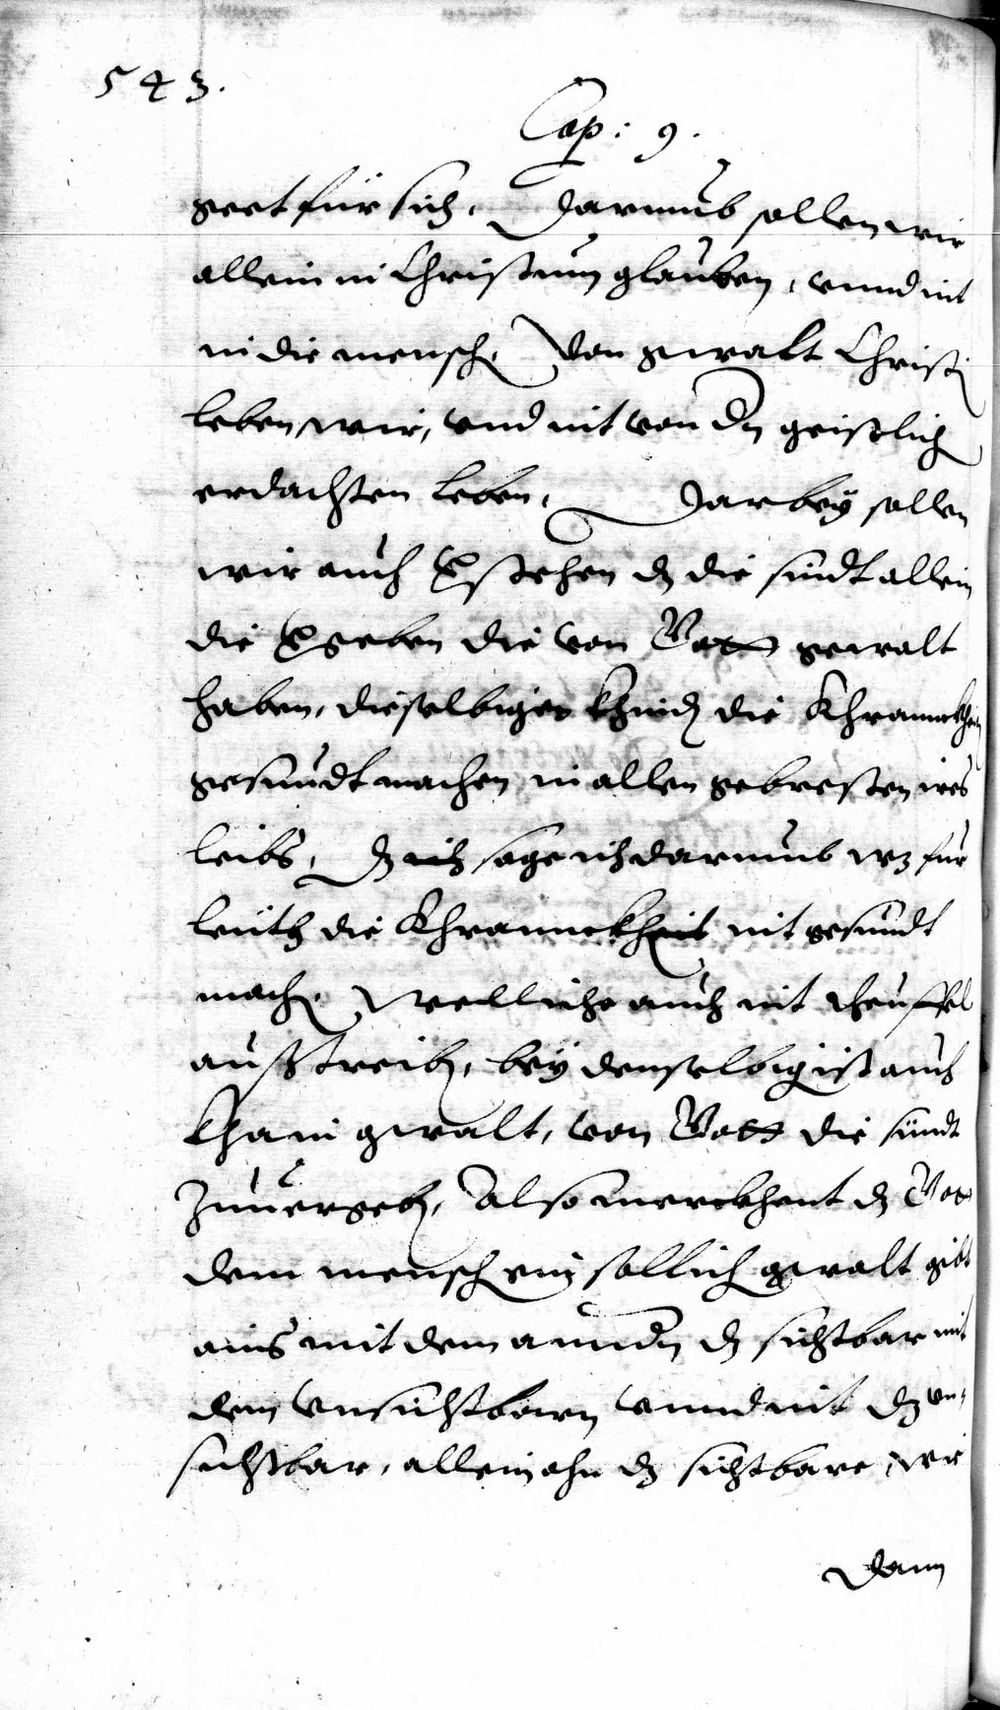 543.
Cap: 9.
geet für sich. Darumb sollen wir
allein in Christum glauben, vnnd nit
in die mensch. Von gwalt Christi
leben wir, vnd nit von dn geistlich
erdachten leben. Darbeÿ sollen
wir auch vstehen dz die sündt allein
die vgeben die von Gott gewalt
haben, dieselbigen khind die Khrannckhen
gesundt machen in allen gebresten ires
leibs, dz sage ich darumb wz für
leüth die Khrannckheit nit gesundt
mach. Welliche auch nit theuffel
außtreib, beÿ denselbig ist auch
khain gwalt, von Gott die sündt
zuuergeb, Also merckhent dz Gott
dem mensch ein sollich gwalt gibt
ains mit dem anndn dz sichtbar mit
dem vnsichtbarn vnnd nit dz vn-
sichtbar, allein ohn dz sichtbare, wie
dann